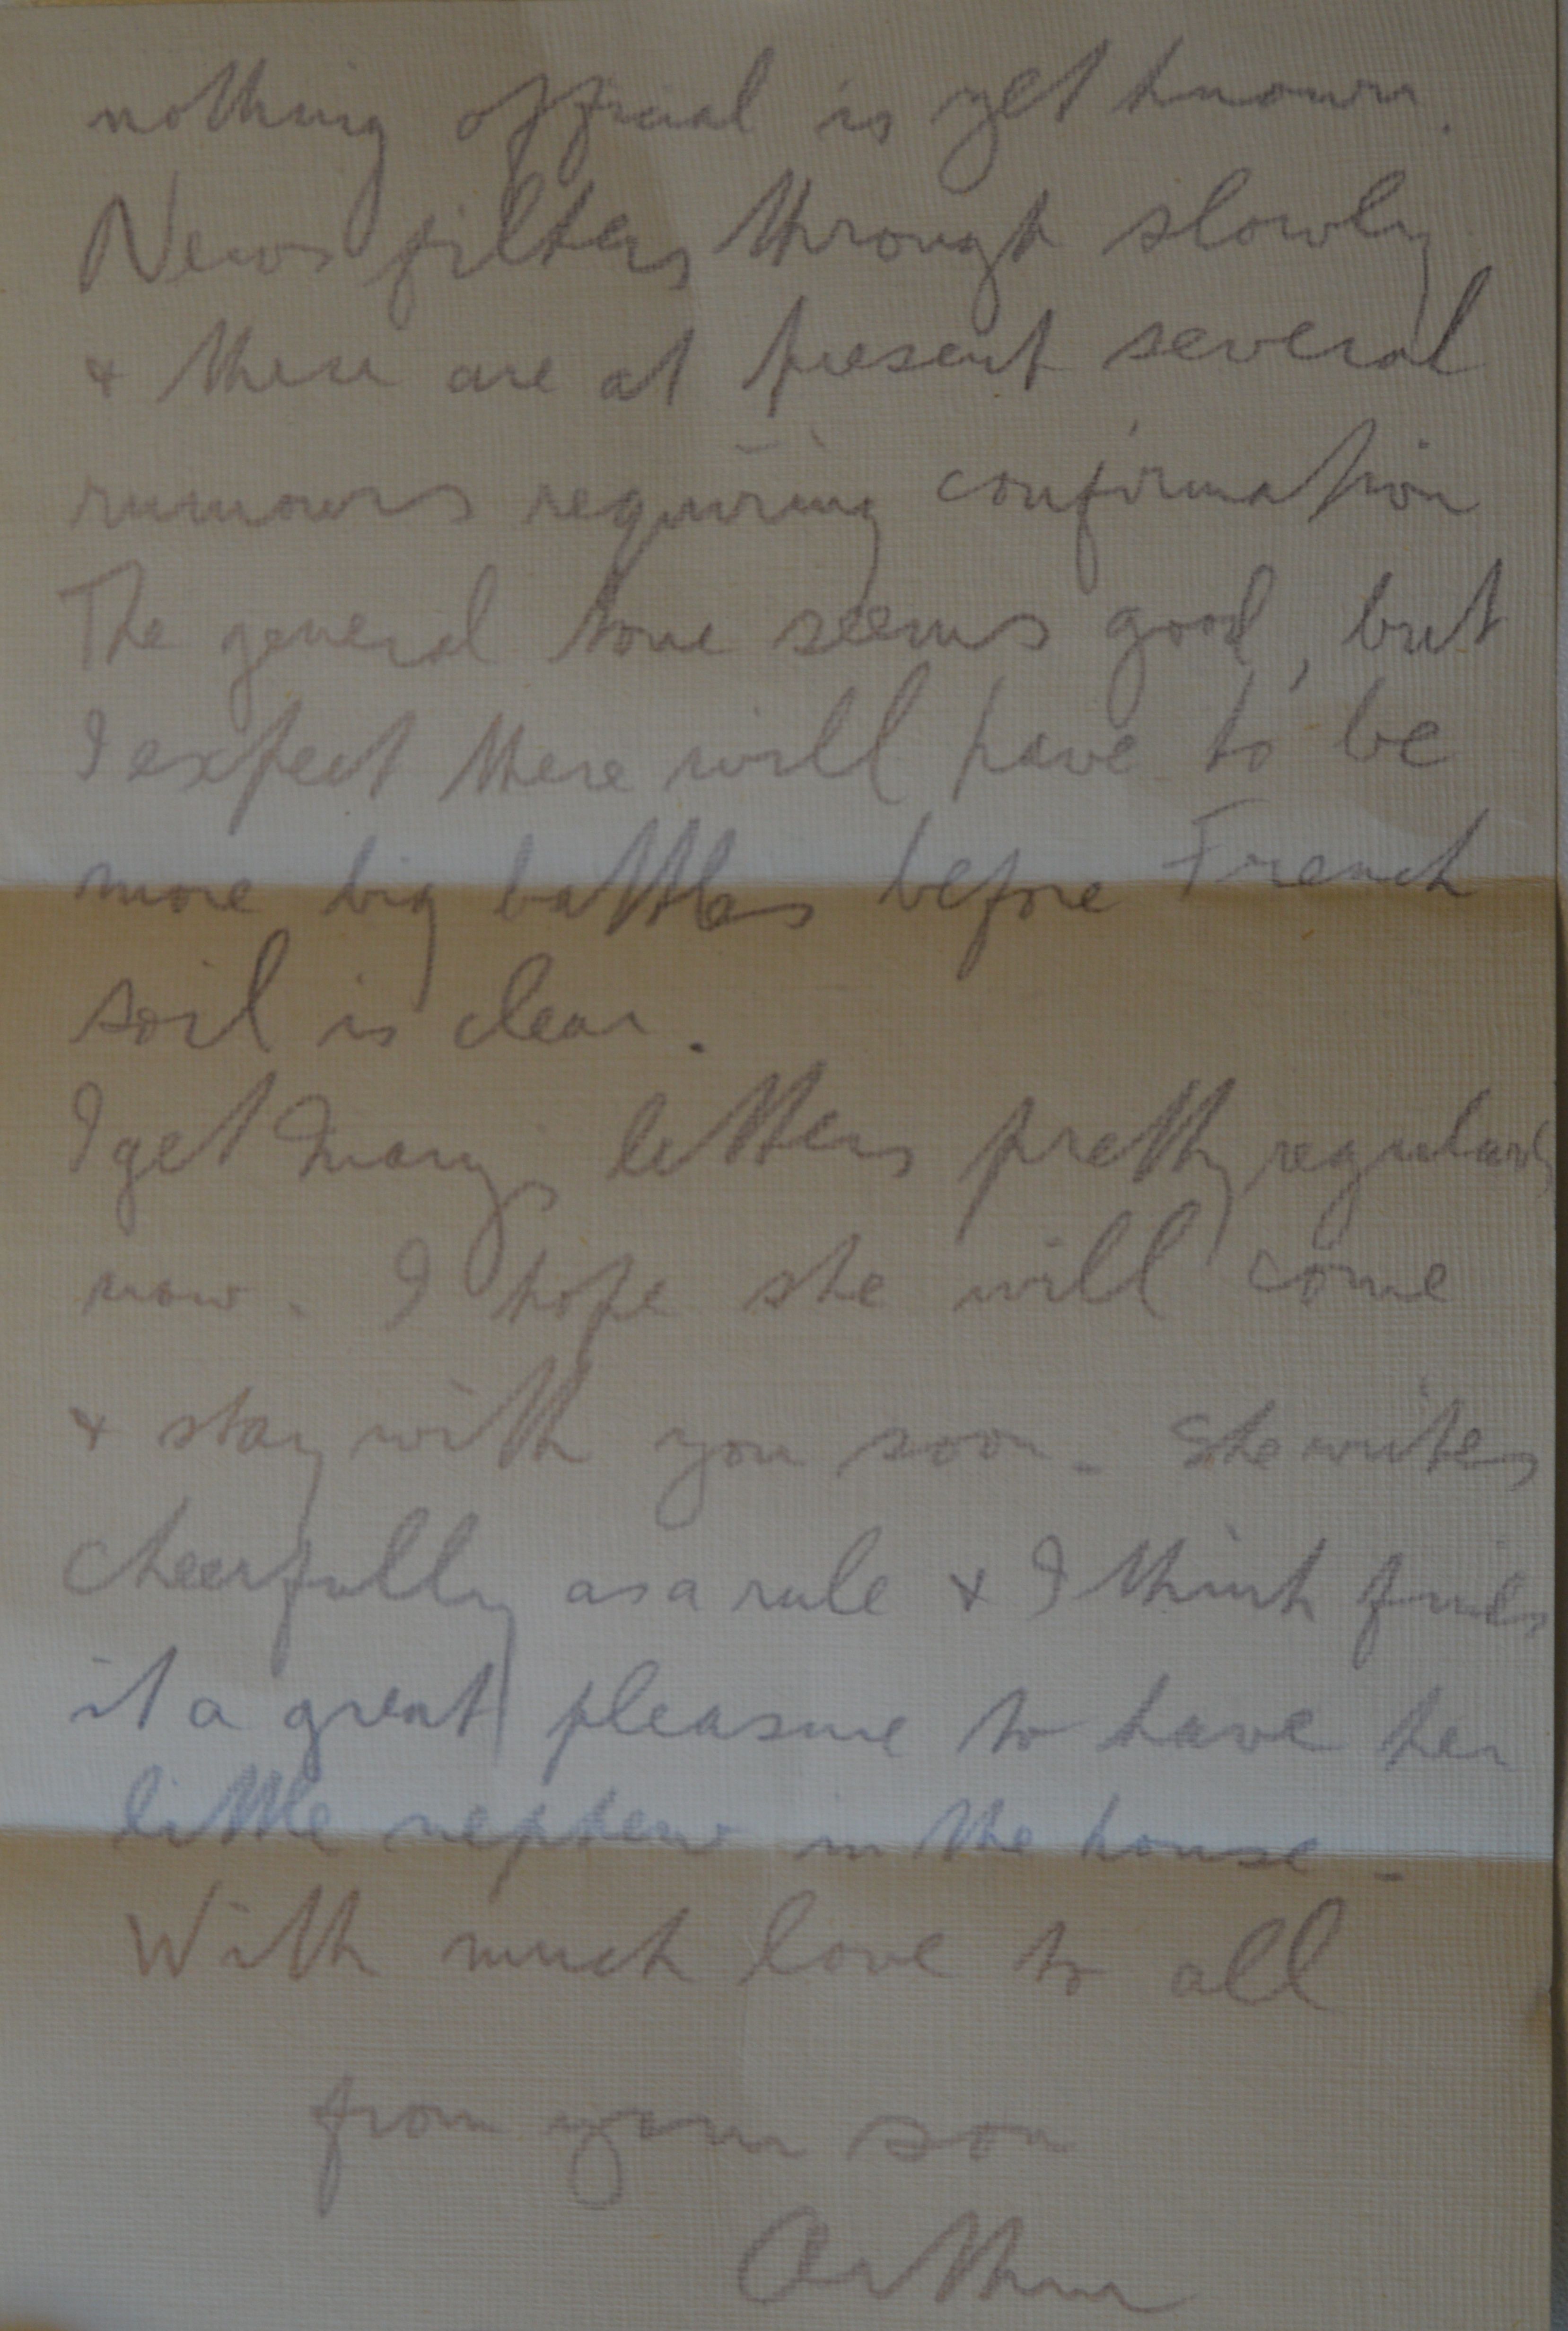 nothing official is yet known.
News filters through slowly
& there are at present several
rumours requiring confirmation
The general tone seems good, but
I expect there will have to be
more big battles before French
soil is clear.
I get Marys letters pretty regularly
now. I hope she will come
& stay with you soon. She writes
cheerfully as a rule & I think finds
it a great pleasure to have her
little nephew in the house.
With much love to all
from your son
Arthur